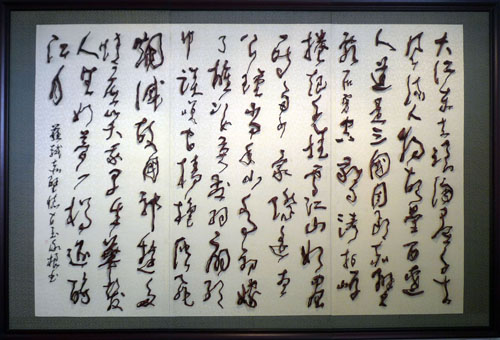 大江東去浪淘盡千古
風流人物故壘西邊
人道是三國周郎赤壁
亂石穿空驚濤拍岸
捲起千堆雪江山如畫
一時多少豪傑遙想
公瑾當年小喬初嫁
了雄姿英發羽扇綸
巾談笑間檣櫓灰飛
煙滅故國神遊多
情應笑我早生華發
人生如夢一樽還酹
江月
蘇軾赤壁懷古 書